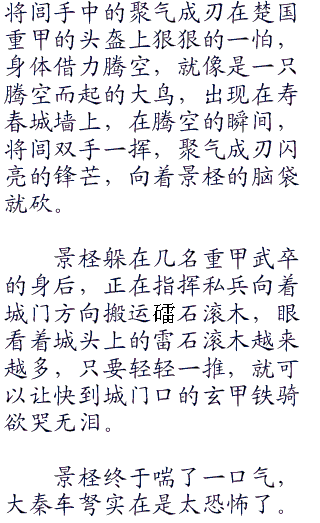 将闾手中的聚气成刃在楚国
重甲的头盔上狠狠的一怕，
身体借力腾空，就像是一只
腾空而起的大鸟，出现在寿
春城墙上，在腾空的瞬间，
将闾双手一挥，聚气成刃闪
亮的锋芒，向着景柽的脑袋
就砍。
景柽躲在几名重甲武卒
的身后，正在指挥私兵向着
城门方向搬运礌石滚木，眼
看着城头上的雷石滚木越来
越多，只要轻轻一推，就可
以让快到城门口的玄甲铁骑
欲哭无泪。
景柽终于喘了一口气，
大秦车弩实在是太恐怖了。